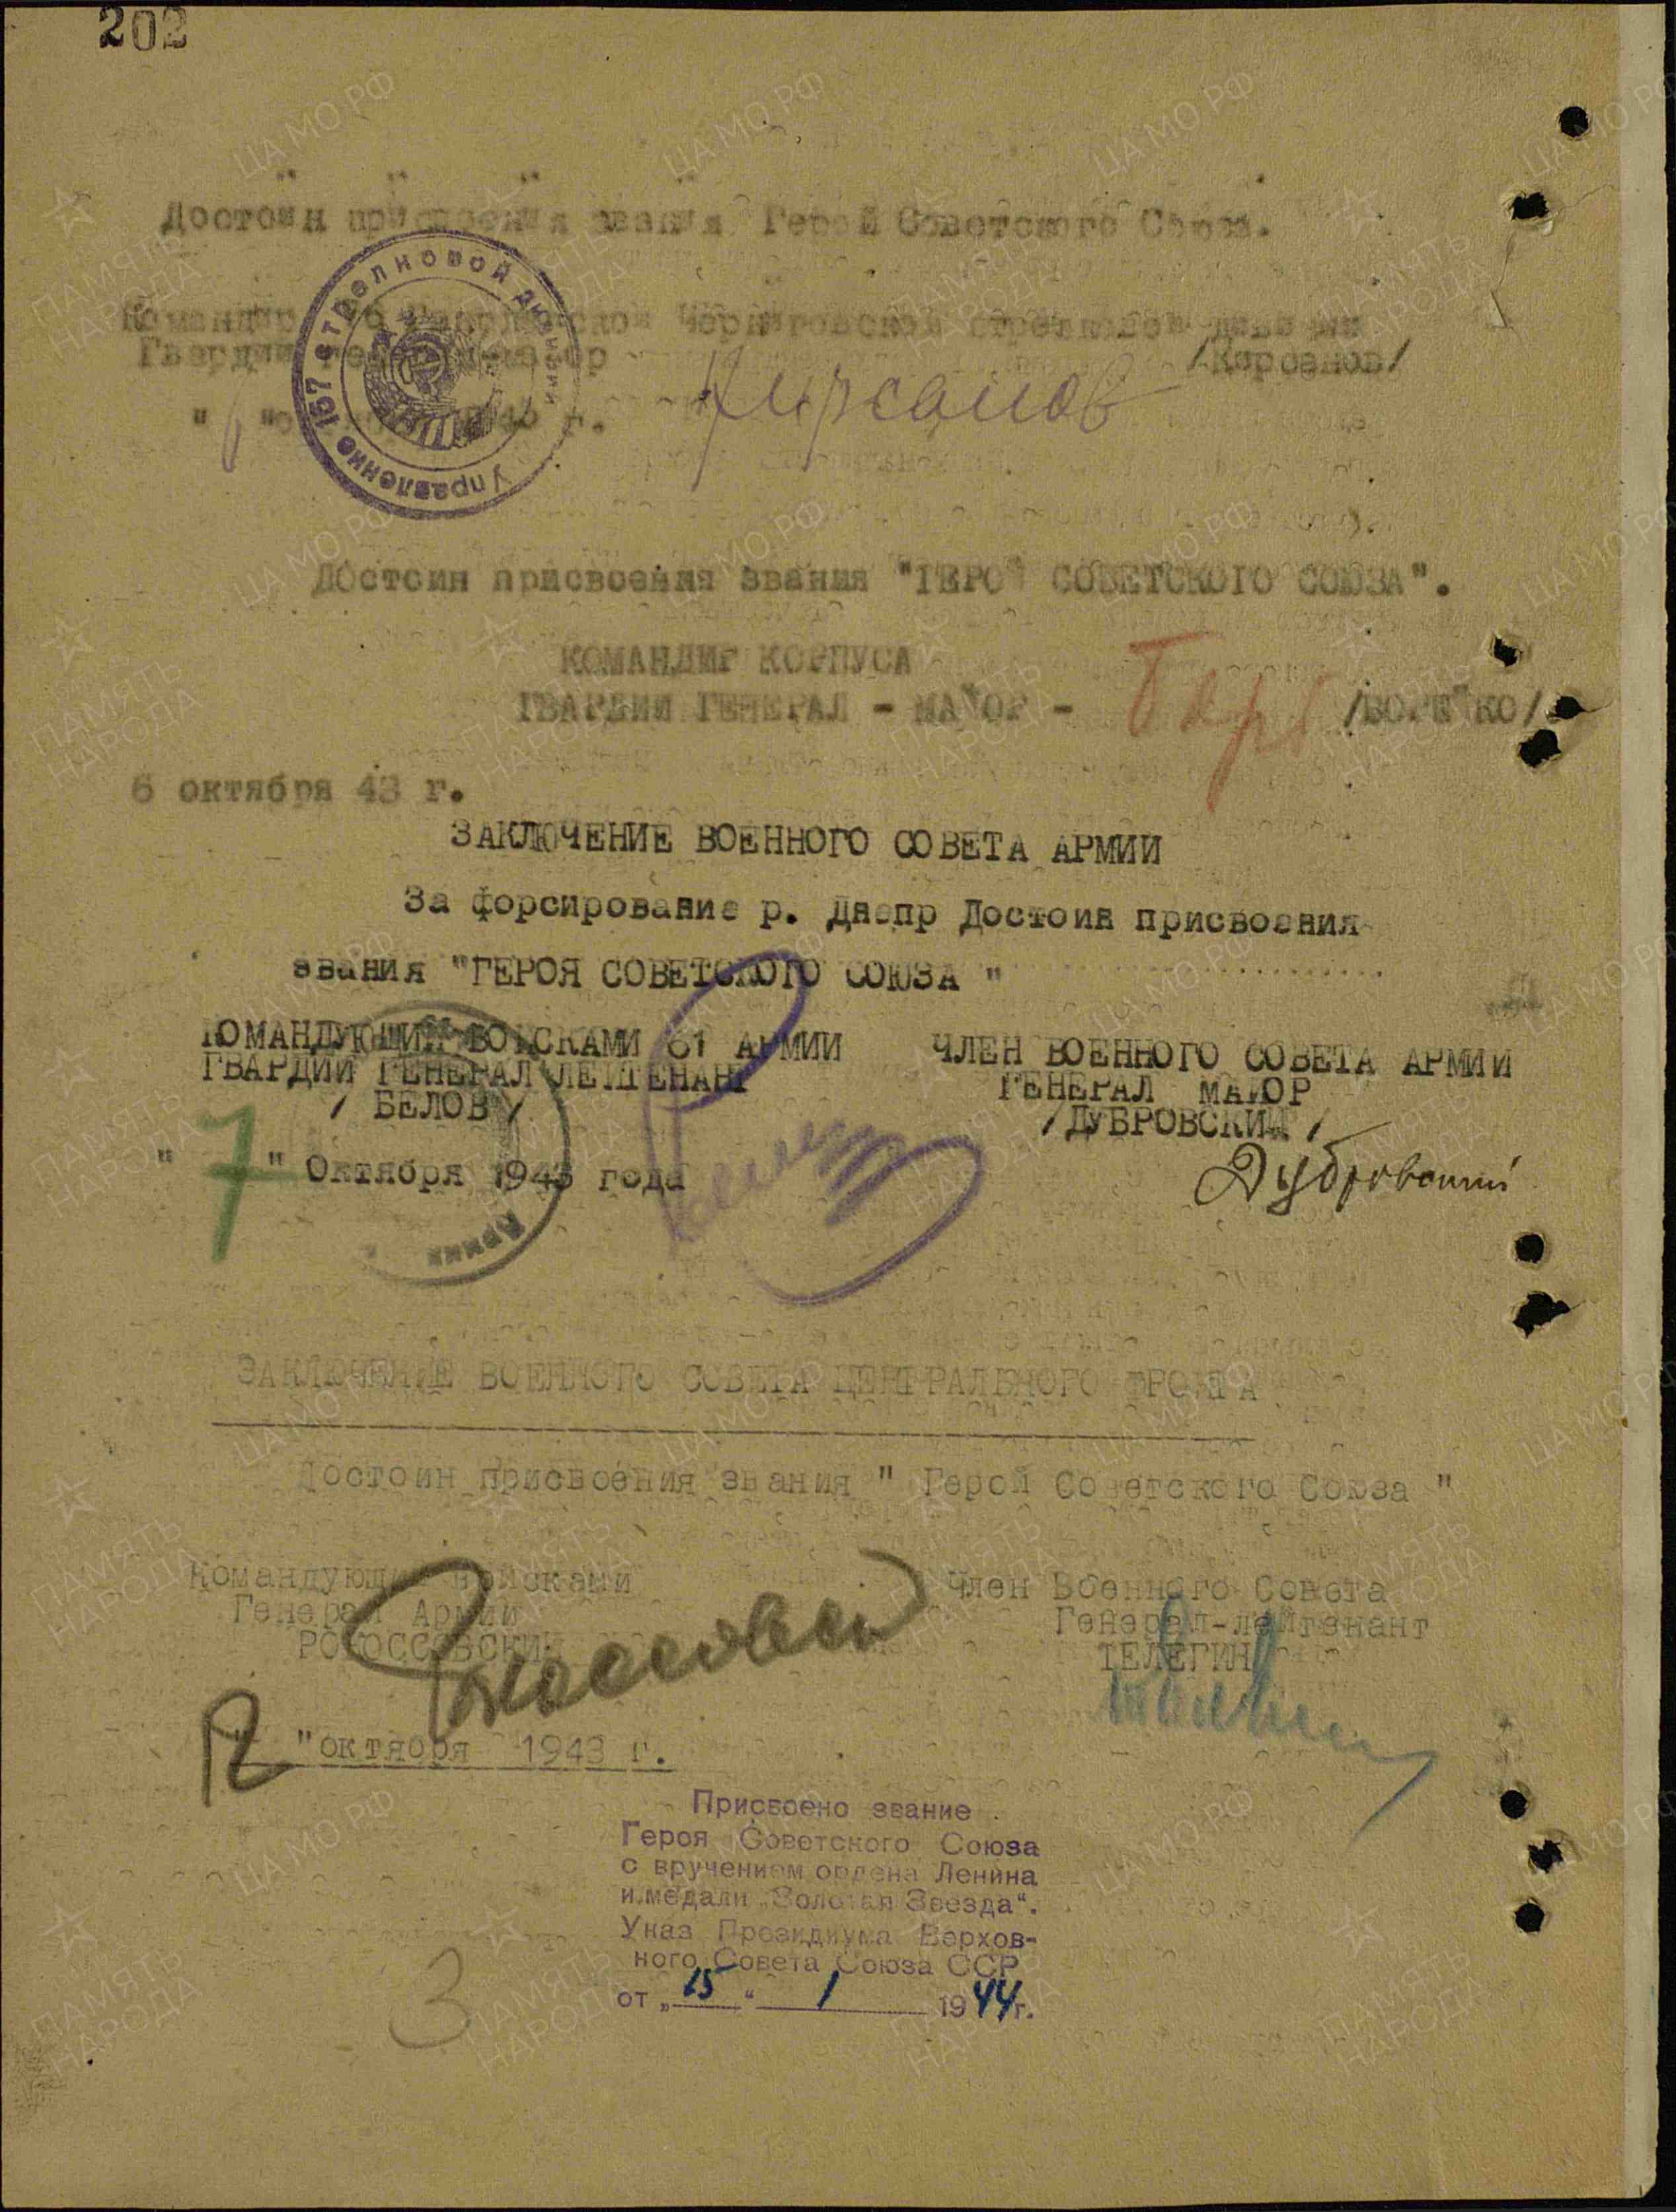 202
Достоин присвоения звания Герой Советского Союза.
Командир 76 Гвардейской Черниговской стрелковой дивизии
Гвардии генерал-майор /Кирсанов/
Кирсанов
" " 1943 г.
Управление 157 стрелковой дивизии
Достоин присвоения звания "ГЕРОЙ СОВЕТСКОГО СОЮЗА".
КОМАНДИР КОРПУСА
ГВАРДИИ ГЕНЕРАЛ - МАЙОР -
6 октября 43 г.
ЗАКЛЮЧЕНИЕ ВОЕННОГО СОВЕТА АРМИИ
За форсирование р. Днепр Достоин присвоения
звания "ГЕРОЯ СОВЕТСКОГО СОЮЗА "
КОМАНДУЮЩИЙ ВОЙСКАМИ 61 АРМИИ
ГВАРДИИ ГЕНЕРАЛ ЛЕЙТЕНАНТ
/ БЕЛОВ /
" 7 " Октября 1943 года
Армии
ЧЛЕН ВОЕННОГО СОВЕТА АРМИИ
ГЕНЕРАЛ МАЙОР
/ДУБРОВСКИЙ /
Дубровский
ЗАКЛЮЧЕНИЕ ВОЕННОГО СОВЕТА ЦЕНТРАЛЬНОГО ФРОНТА
Достоин присвоения звания " Герой Советского Союза "
Командующий войсками
Генерал Армии
РОКОССОВСКИЙ
Член Военного Совета
Генерал-лейтенант
ТЕЛЕГИН
12 "октября 1943 г.
Присвоено звание
Героя Советского Союза
с вручением ордена Ленина
и медали „Золотая Звезда".
Указ Президиума Верхов-
ного Совета Союза ССР
от „15" 1 1944г.
3